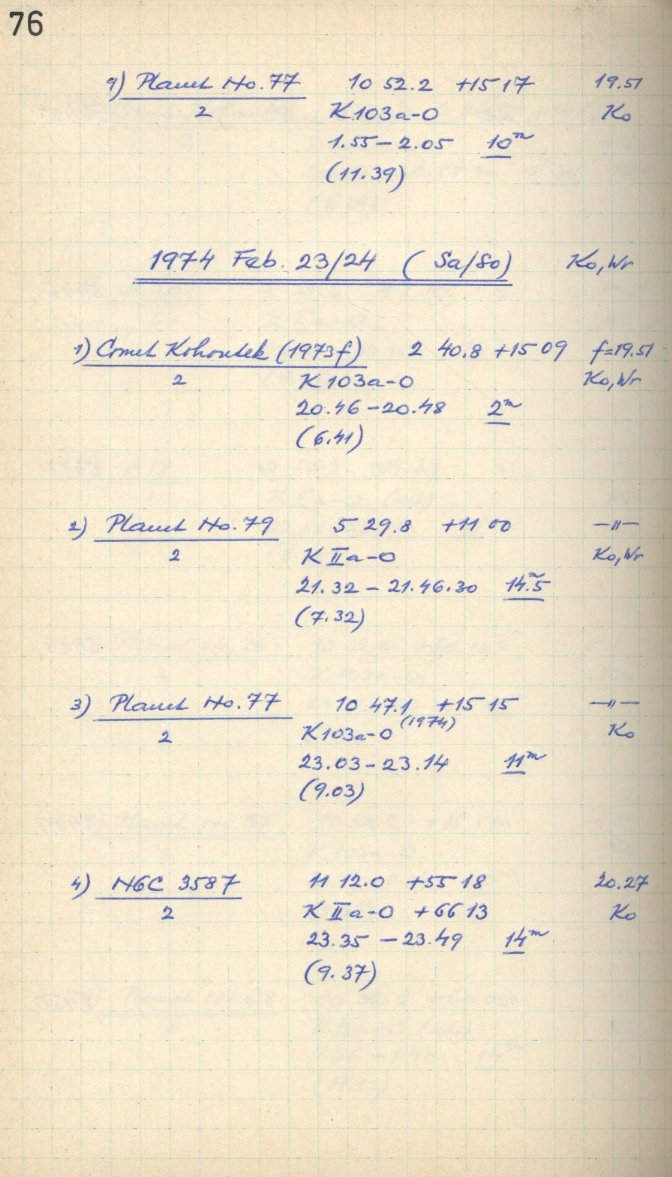 76
9) Planet No. 77 10 52.2 +15 17 19.51
2 K 103a-O Ko
1.55 – 2.05 10m
(11.39)
1974 Feb. 23/24 (Sa/So) Ko, Wr
1) Comet Kohoutek (1973f) 2 40.8 +15 09 f=19.51
2 K 103a-O Ko, Wr
20.46 – 20.48 2m
(6.41)
2) Planet No. 79 5 29.8 +11 00 —〃—
2 K IIa-O Ko, Wr
21.32 – 21.46.30 14m.5
(7.32)
3) Planet No. 77 10 47.1 +15 15 —〃—
2 K 103a-O (1974) Ko
23.03 – 23.14 11m
(9.03)
4) NGC 3587 11 12.0 +55 18 20.27
2 K IIa-O +66 13 Ko
23.35 – 23.49 14m
(9.37)